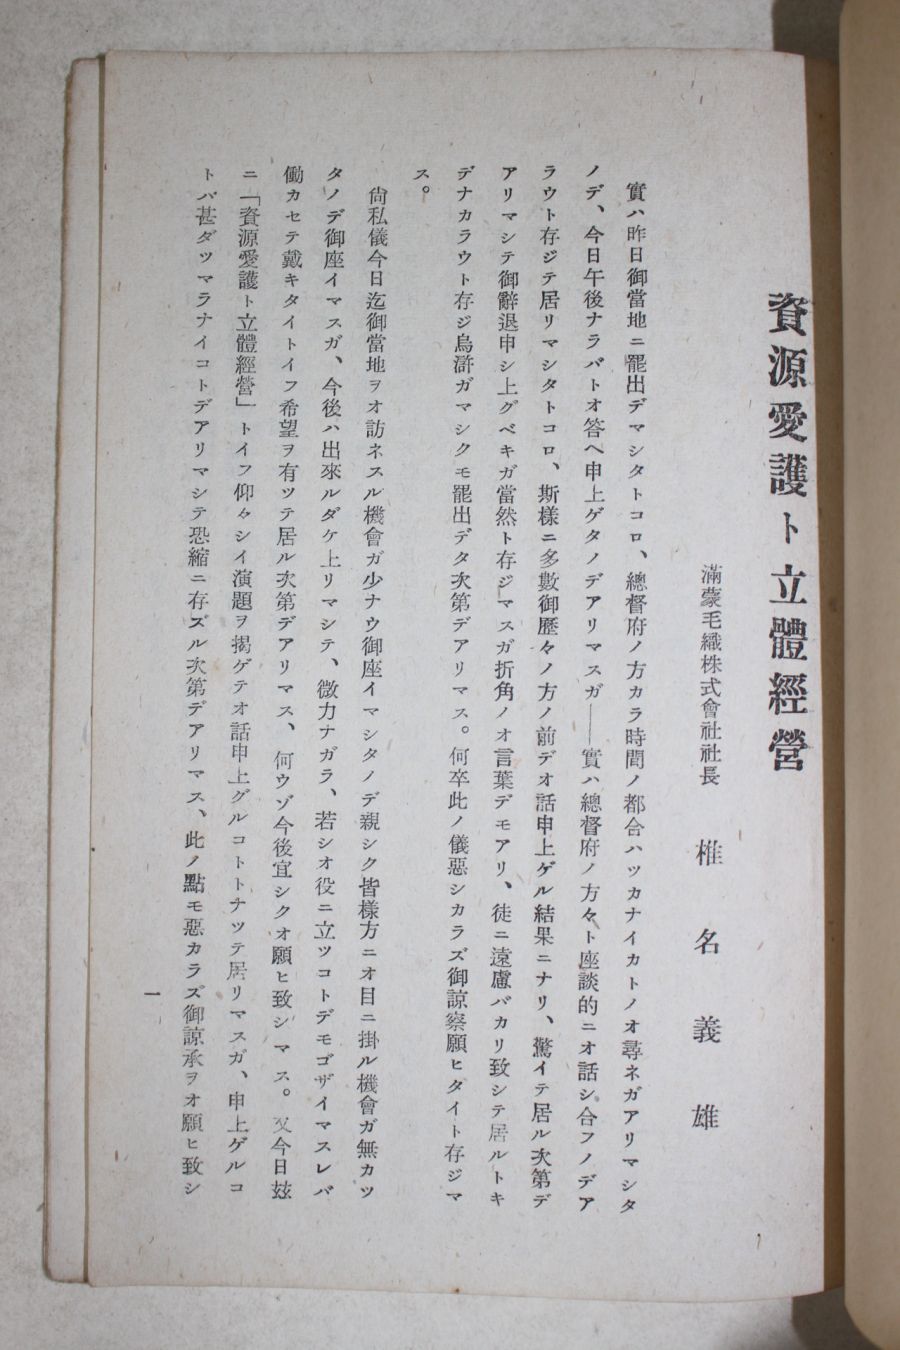 資源愛護ト立體經營
滿蒙毛織株式會社社長　椎名義雄
實ハ昨日御當地ニ罷出デマシタトコロ、總督府ノ方カラ時間ノ都合ハツカナイカトノオ尋ネガアリマシタ
ノデ、今日午後ナラバトオ答ヘ申上ゲタノデアリマスガ――實ハ總督府ノ方々ト座談的ニオ話シ合フノデア
ラウト存ジテ居リマシタトコロ、斯樣ニ多數御歷々ノ方ノ前デオ話申上ゲル結果ニナリ、驚イテ居ル次第デ
アリマシテ御辭退申シ上グベキガ當然ト存ジマスガ折角ノオ言葉デモアリ、徒ニ遠慮バカリ致シテ居ルトキ
デナカラウト存ジ烏滸ガマシクモ罷出デタ次第デアリマス。何卒此ノ儀惡シカラズ御諒察願ヒタイト存ジマ
ス。
尙私儀今日迄御當地ヲオ訪ネスル機會ガ少ナウ御座イマシタノデ親シク皆樣方ニオ目ニ掛ル機會ガ無カツ
タノデ御座イマスガ、今後ハ出來ルダケ上リマシテ、微力ナガラ、若シオ役ニ立ツコトデモゴザイマスレバ
働カセテ戴キタイトイフ希望ヲ有ツテ居ル次第デアリマス、何ウゾ今後宜シクオ願ヒ致シマス。又今日玆
ニ「資源愛護ト立體經營」トイフ仰々シイ演題ヲ揭ゲテオ話申上グルコトトナツテ居リマスガ、申上ゲルコ
トバ甚ダツマラナイコトデアリマシテ恐縮ニ存ズル次第デアリマス、此ノ點モ惡カラズ御諒承ヲオ願ヒ致シ
一